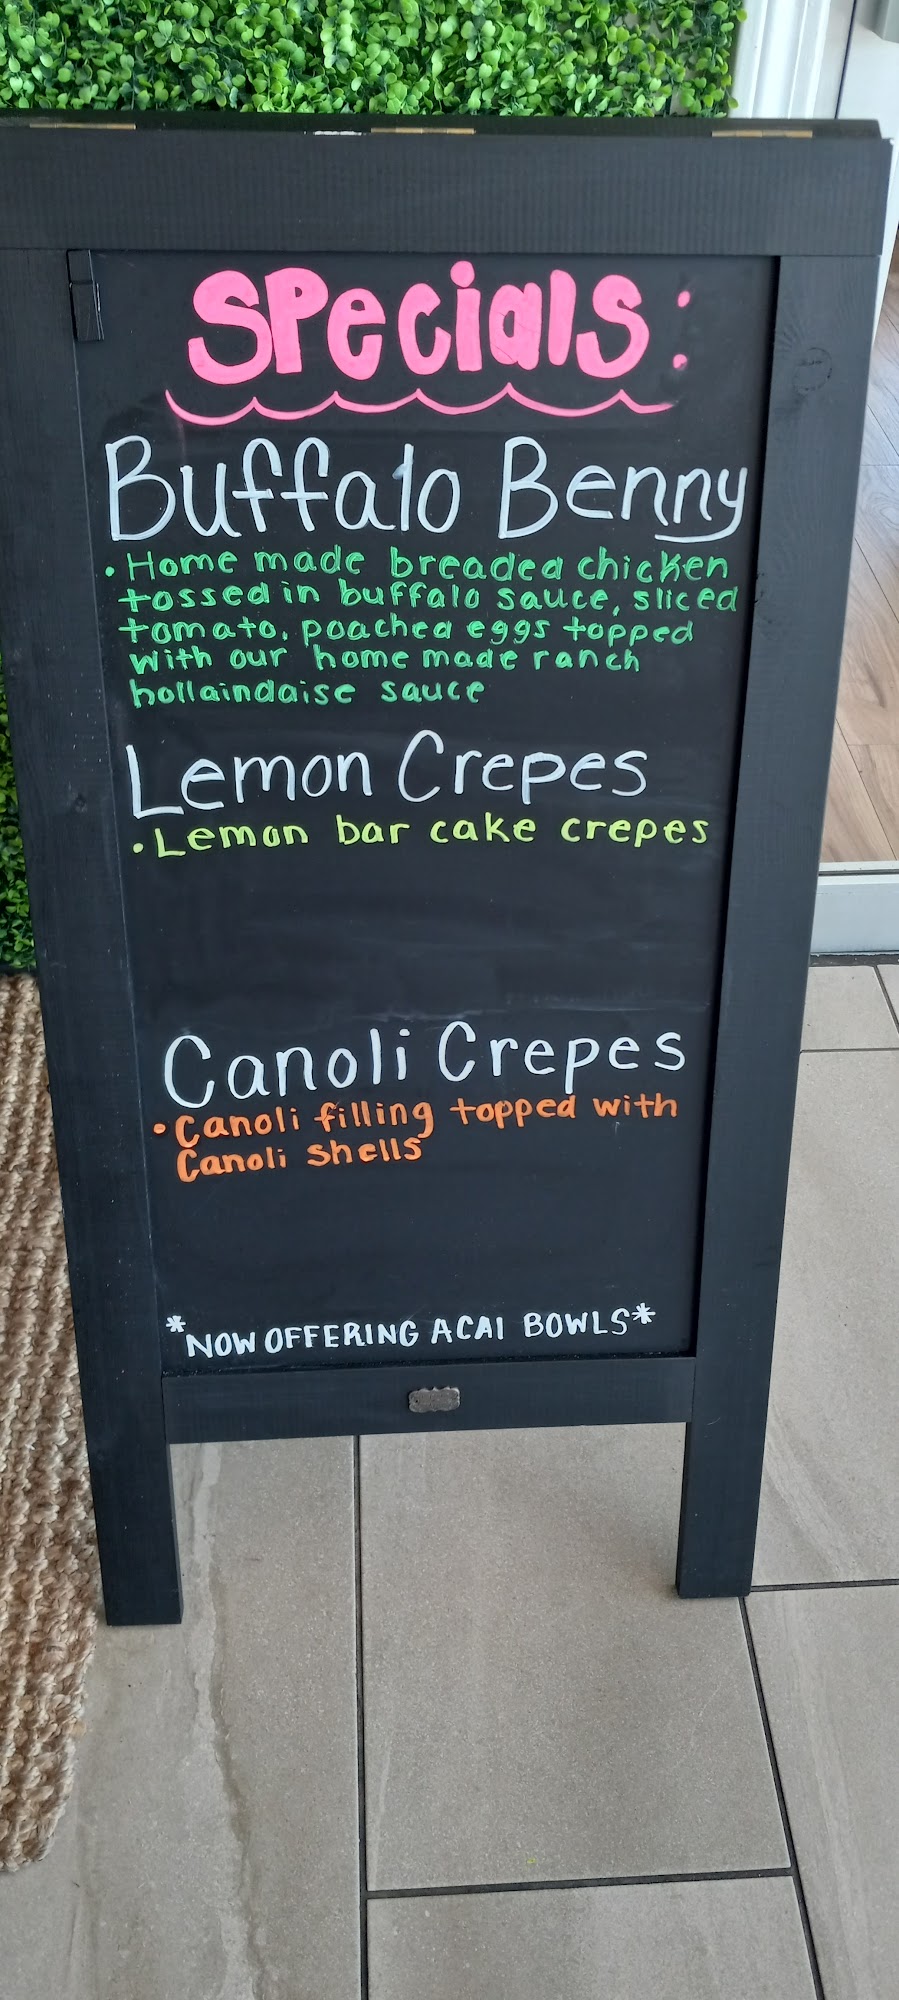 Specials:
Buffalo Benny
• Home made breaded chicken
tossed in buffalo sauce, sliced
tomato, poached eggs topped
with our home made ranch
hollaindaise sauce
Lemon Crepes
• Lemon bar cake crepes
Canoli Crepes
• Canoli filling topped with
Canoli shells
*NOW OFFERING ACAI BOWLS*